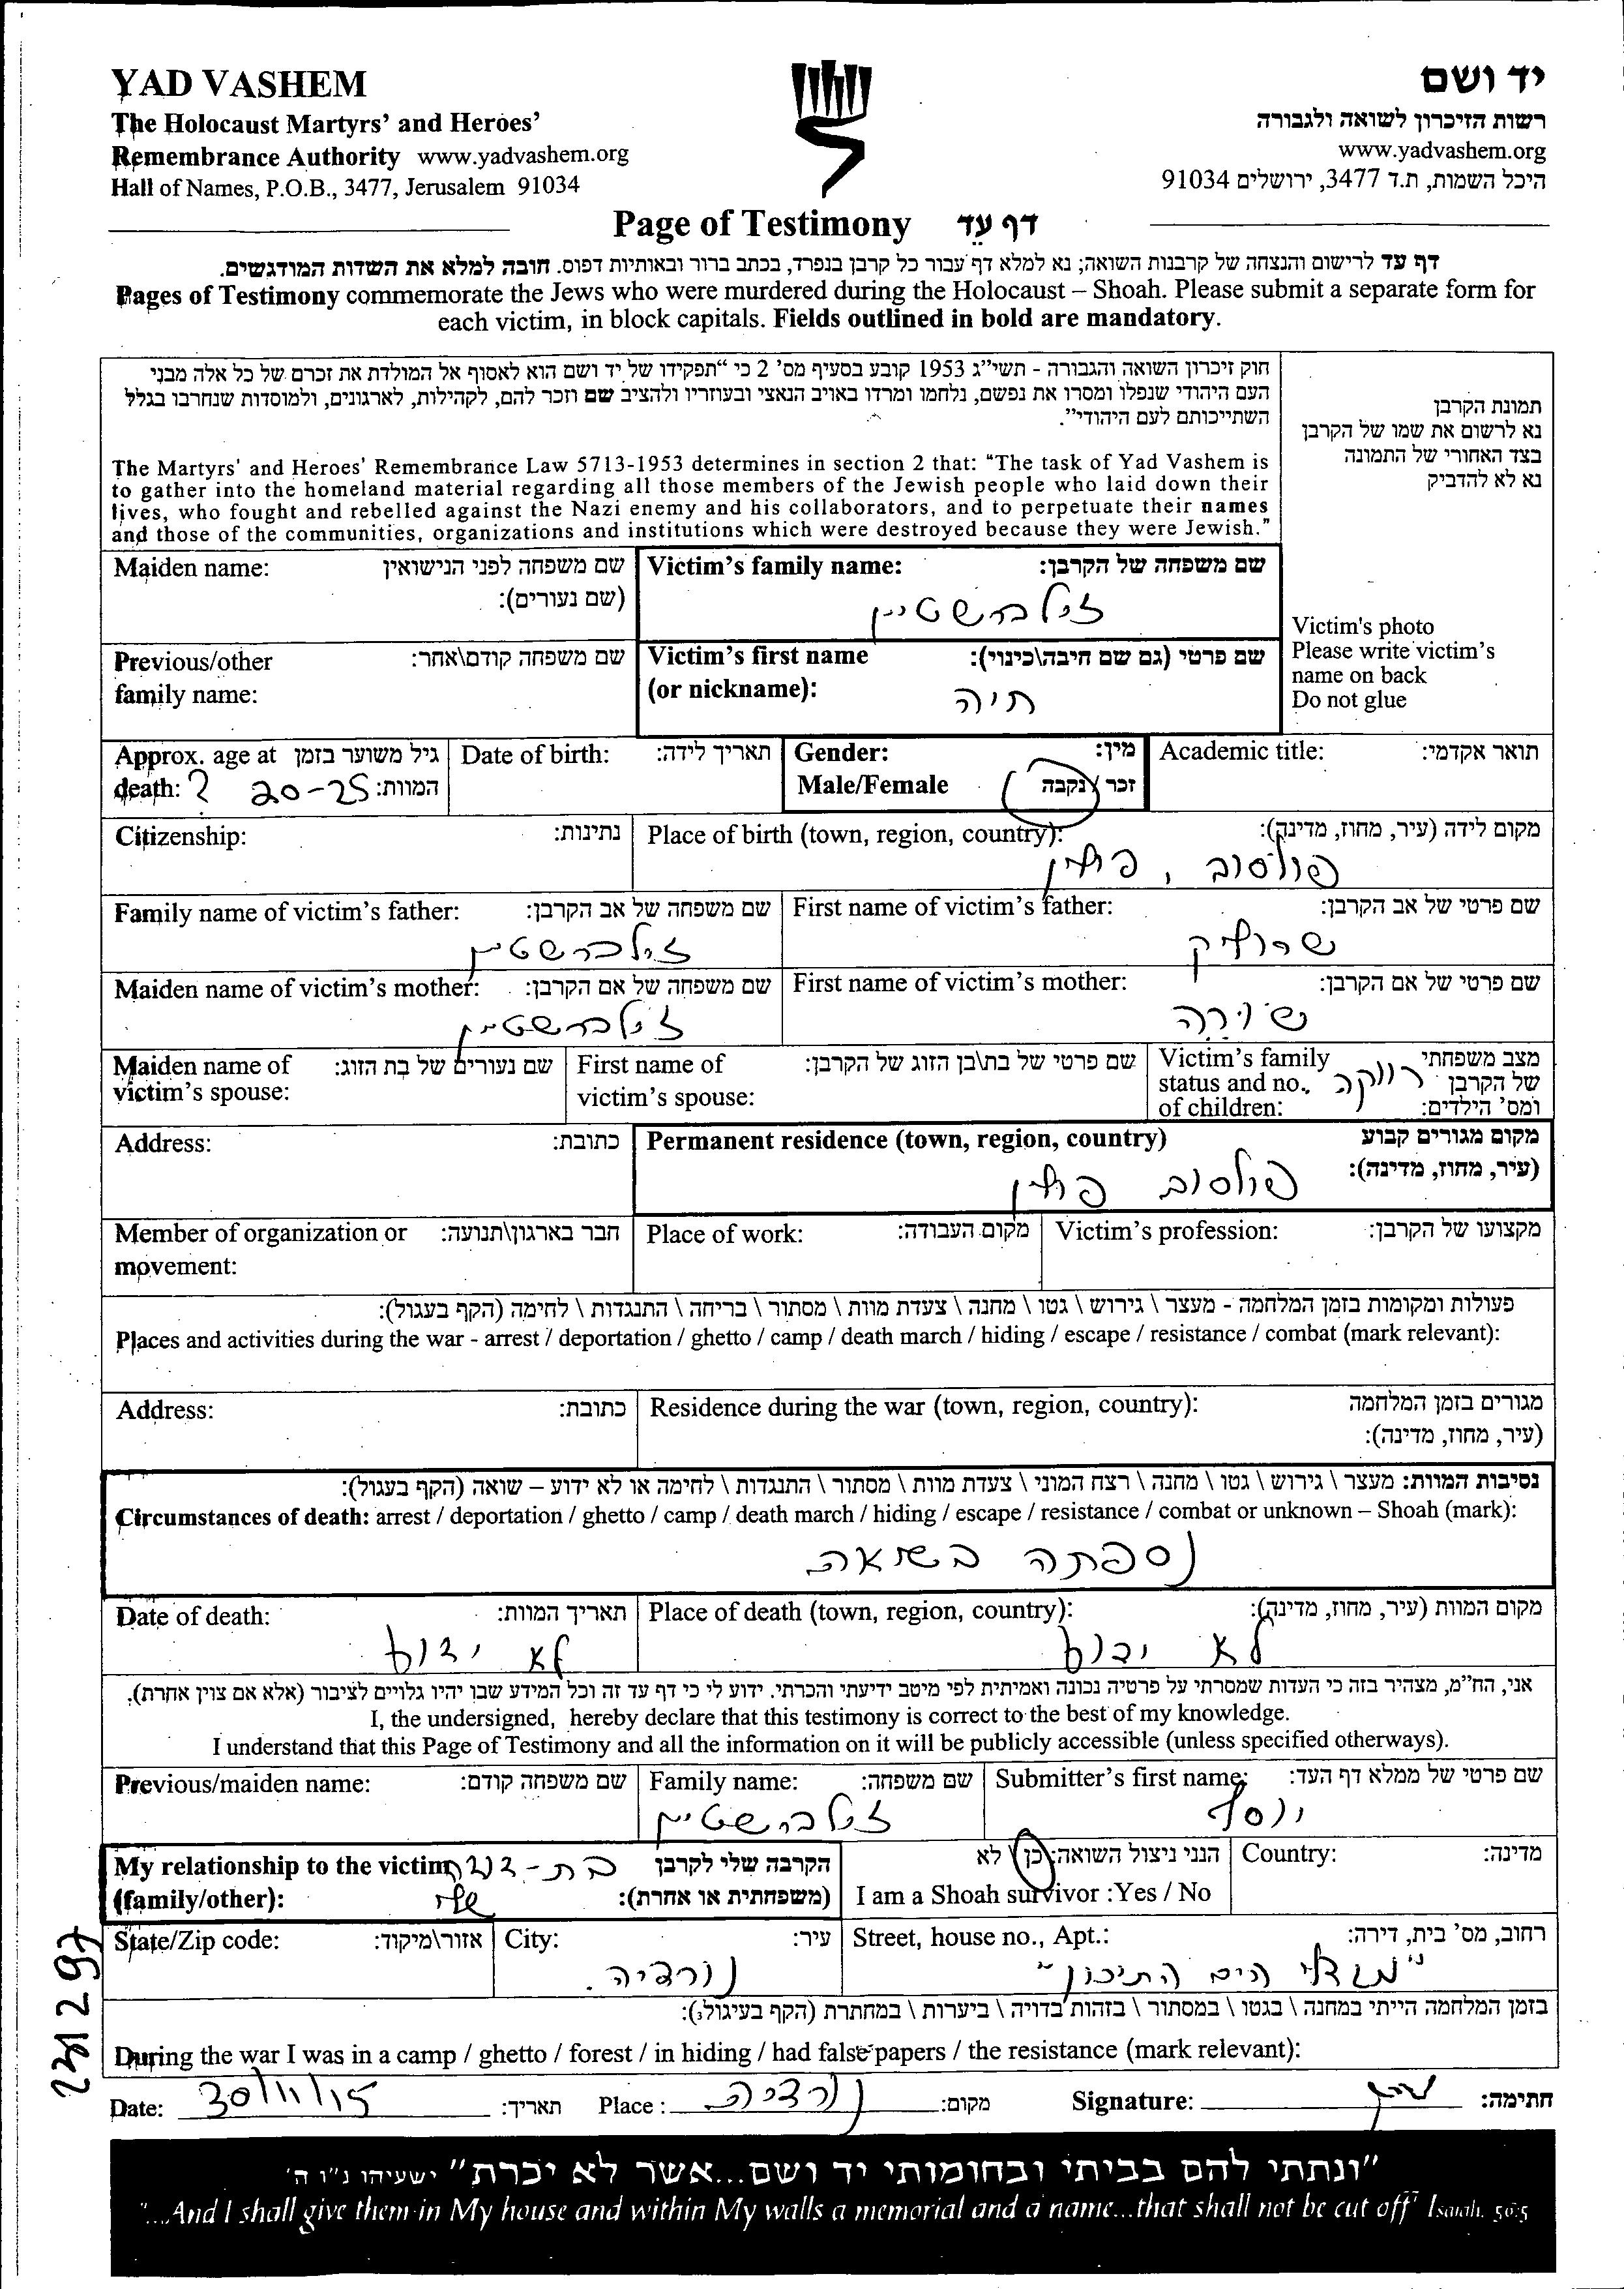 YAD VASHEM
The Holocaust Martyrs' and Heroes'
Remembrance Authority www.yadvashem.org
Hall of Names, P.O.B., 3477, Jerusalem 91034
יד ושם
רשות הזיכרון לשואה ולגבורה
www.yadvashem.org
היכל השמות, ת.ד 3477, ירושלים 91034
Page of Testimony דף עד
דף עד לרישום והנצחה של קרבנות השואה; נא למלא דף עבור כל קרבן בנפרד, בכתב ברור ובאותיות דפוס. חובה למלא את השדות המודגשים.
Pages of Testimony commemorate the Jews who were murdered during the Holocaust – Shoah. Please submit a separate form for
each victim, in block capitals. Fields outlined in bold are mandatory.
חוק זיכרון השואה והגבורה - תשי"ג 1953 קובע בסעיף מס' 2 כי "תפקידו של יד ושם הוא לאסוף אל המולדת את זכרם של כל אלה מבני
העם היהודי שנפלו ומסרו את נפשם, נלחמו ומרדו באויב הנאצי ובעוזריו ולהציב שם וזכר להם, לקהילות, לארגונים, ולמוסדות שנחרבו בגלל
השתייכותם לעם היהודי".
The Martyrs' and Heroes' Remembrance Law 5713-1953 determines in section 2 that: "The task of Yad Vashem is
to gather into the homeland material regarding all those members of the Jewish people who laid down their
lives, who fought and rebelled against the Nazi enemy and his collaborators, and to perpetuate their names
and those of the communities, organizations and institutions which were destroyed because they were Jewish."
תמונת הקרבן
נא לרשום את שמו של הקרבן
בצד האחורי של התמונה
נא לא להדביק
Victim's photo
Please write victim's
name on back
Do not glue
Victim's family name: שם משפחה של הקרבן:
זילברשטיין
Maiden name: שם משפחה לפני הנישואין
(שם נעורים):
Victim's first name שם פרטי (גם שם חיבה\כינוי):
(or nickname): חיה
Previous/other שם משפחה קודם\אחר:
family name:
Approx. age at גיל משוער בזמן
death: ? 20-25 המוות:
Date of birth: תאריך לידה:
Gender: מין:
Male/Female זכר / נקבה
Academic title: תואר אקדמי:
Citizenship: נתינות:
Place of birth (town, region, country): מקום לידה (עיר, מחוז, מדינה):
פולסוב, פולין
Family name of victim's father: שם משפחה של אב הקרבן:
זילברשטיין
First name of victim's father: שם פרטי של אב הקרבן:
שרוליק
Maiden name of victim's mother: שם משפחה של אם הקרבן:
זילברשטיין
First name of victim's mother: שם פרטי של אם הקרבן:
שירה
Maiden name of שם נעורים של בת הזוג:
victim's spouse:
First name of שם פרטי של בת\בן הזוג של הקרבן:
victim's spouse:
Victim's family מצב משפחתי
status and no. רווקה של הקרבן
of children: ומס' הילדים:
Address: כתובת:
Permanent residence (town, region, country) מקום מגורים קבוע
(עיר, מחוז, מדינה):
פולסוב פולין
Member of organization or חבר בארגון\תנועה:
movement:
Place of work: מקום העבודה:
Victim's profession: מקצועו של הקרבן:
פעולות ומקומות בזמן המלחמה - מעצר \ גירוש \ גטו \ מחנה \ צעדת מוות \ מסתור \ בריחה \ התנגדות \ לחימה (הקף בעגול):
Places and activities during the war - arrest / deportation / ghetto / camp / death march / hiding / escape / resistance / combat (mark relevant):
Address: כתובת:
Residence during the war (town, region, country): מגורים בזמן המלחמה
(עיר, מחוז, מדינה):
נסיבות המוות: מעצר \ גירוש \ גטו \ מחנה \ רצח המוני \ צעדת מוות \ מסתור \ התנגדות \ לחימה או לא ידוע – שואה (הקף בעגול):
Circumstances of death: arrest / deportation / ghetto / camp / death march / hiding / escape / resistance / combat or unknown – Shoah (mark):
נספתה בשואה
Date of death: תאריך המוות:
לא ידוע
Place of death (town, region, country): מקום המוות (עיר, מחוז, מדינה):
לא ידוע
אני, הח"מ, מצהיר בזה כי העדות שמסרתי על פרטיה נכונה ואמיתית לפי מיטב ידיעתי והכרתי. ידוע לי כי דף עד זה וכל המידע שבו יהיו גלויים לציבור (אלא אם צוין אחרת).
I, the undersigned, hereby declare that this testimony is correct to the best of my knowledge.
I understand that this Page of Testimony and all the information on it will be publicly accessible (unless specified otherways).
Previous/maiden name: שם משפחה קודם:
Family name: שם משפחה:
זילברשטיין
Submitter's first name: שם פרטי של ממלא דף העד:
יוסף
My relationship to the victim הקרבה שלי לקרבן בת-דודה
(family/other): (משפחתית או אחרת): שלי
הנני ניצול השואה: כן / לא
I am a Shoah survivor :Yes / No
Country: מדינה:
State/Zip code: אזור\מיקוד:
City: עיר:
נורדיה.
Street, house no., Apt.: רחוב, מס' בית, דירה:
"מגדלי הים התיכון"
בזמן המלחמה הייתי במחנה \ בגטו \ במסתור \ בזהות בדויה \ ביערות \ במחתרת (הקף בעיגול):
During the war I was in a camp / ghetto / forest / in hiding / had false papers / the resistance (mark relevant):
Date: 30/11/15 תאריך: Place : נורדיה מקום: Signature: חתימה:
"ונתתי להם בביתי ובחומותי יד ושם...אשר לא יכרת" ישעיהו נ"ו ה'
"...And I shall give them in My house and within My walls a memorial and a name...that shall not be cut off" Isaiah. 56:5